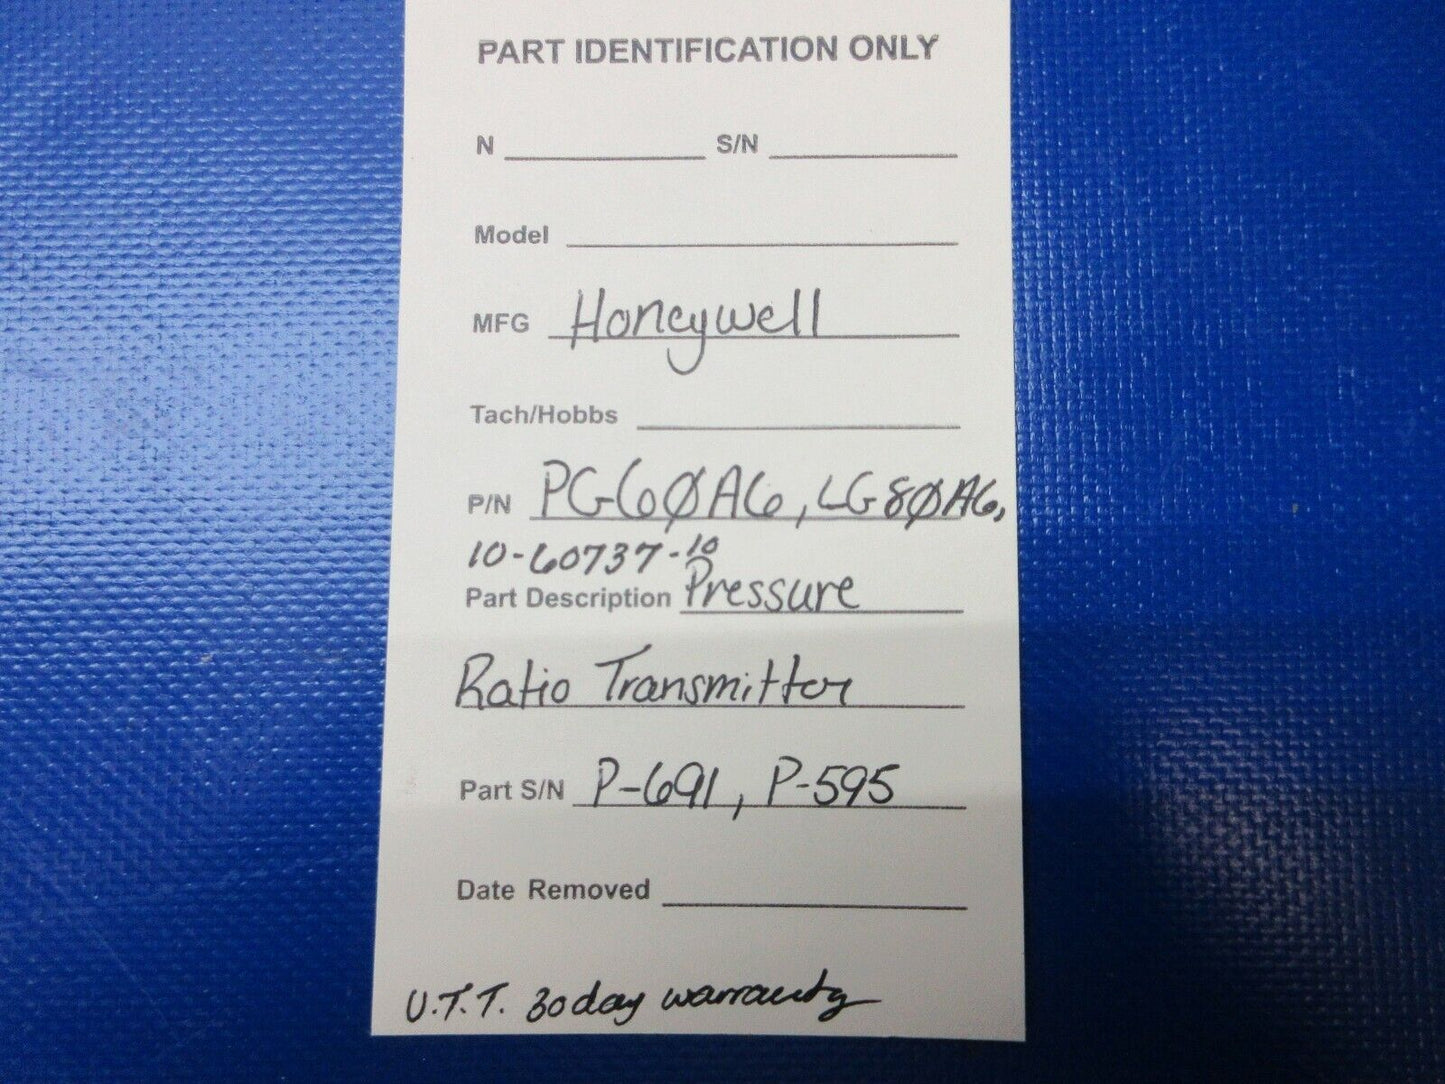 PART IDENTIFICATION ONLY
N S/N
Model
MFG Honeywell
Tach/Hobbs
P/N PG60A6, LG80A6,
10-60737-10
Part Description Pressure
Ratio Transmitter
Part S/N P-691, P-595
Date Removed
U.T.T. 30 day warranty